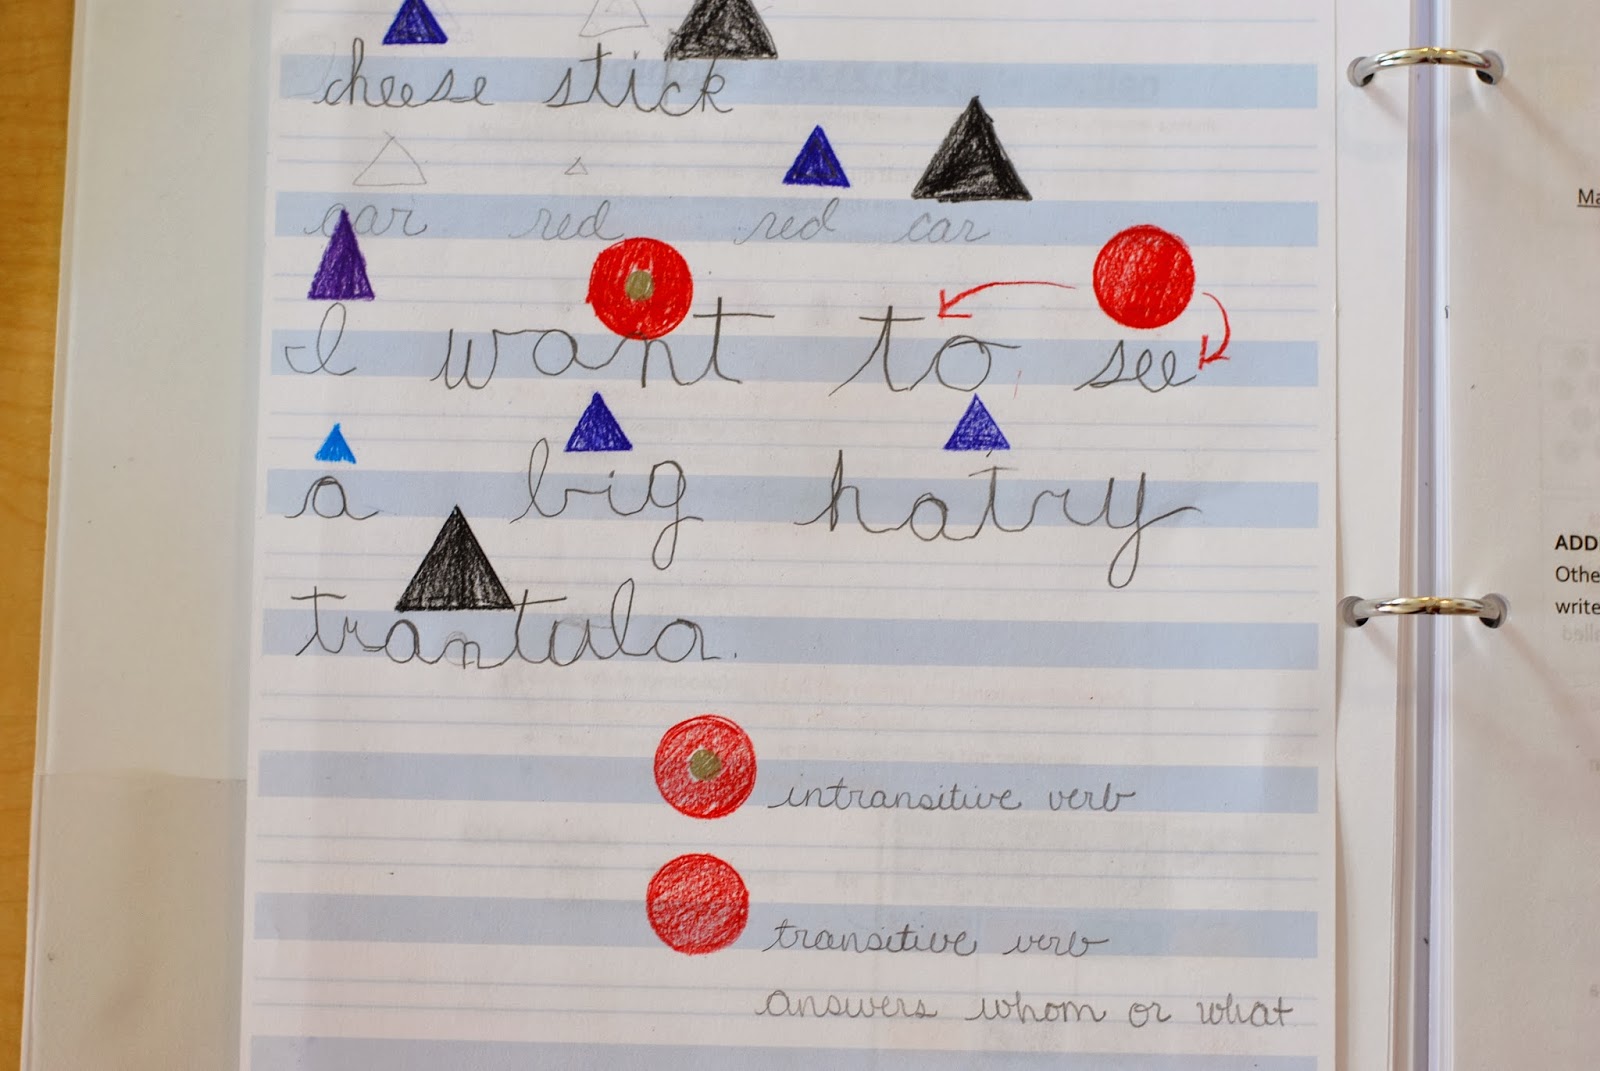 cheese stick
car red red car
I want to see
a big hairy
trantula.
intransitive verb
transitive verb
answers whom or what
Ma
ADD
Othe
write